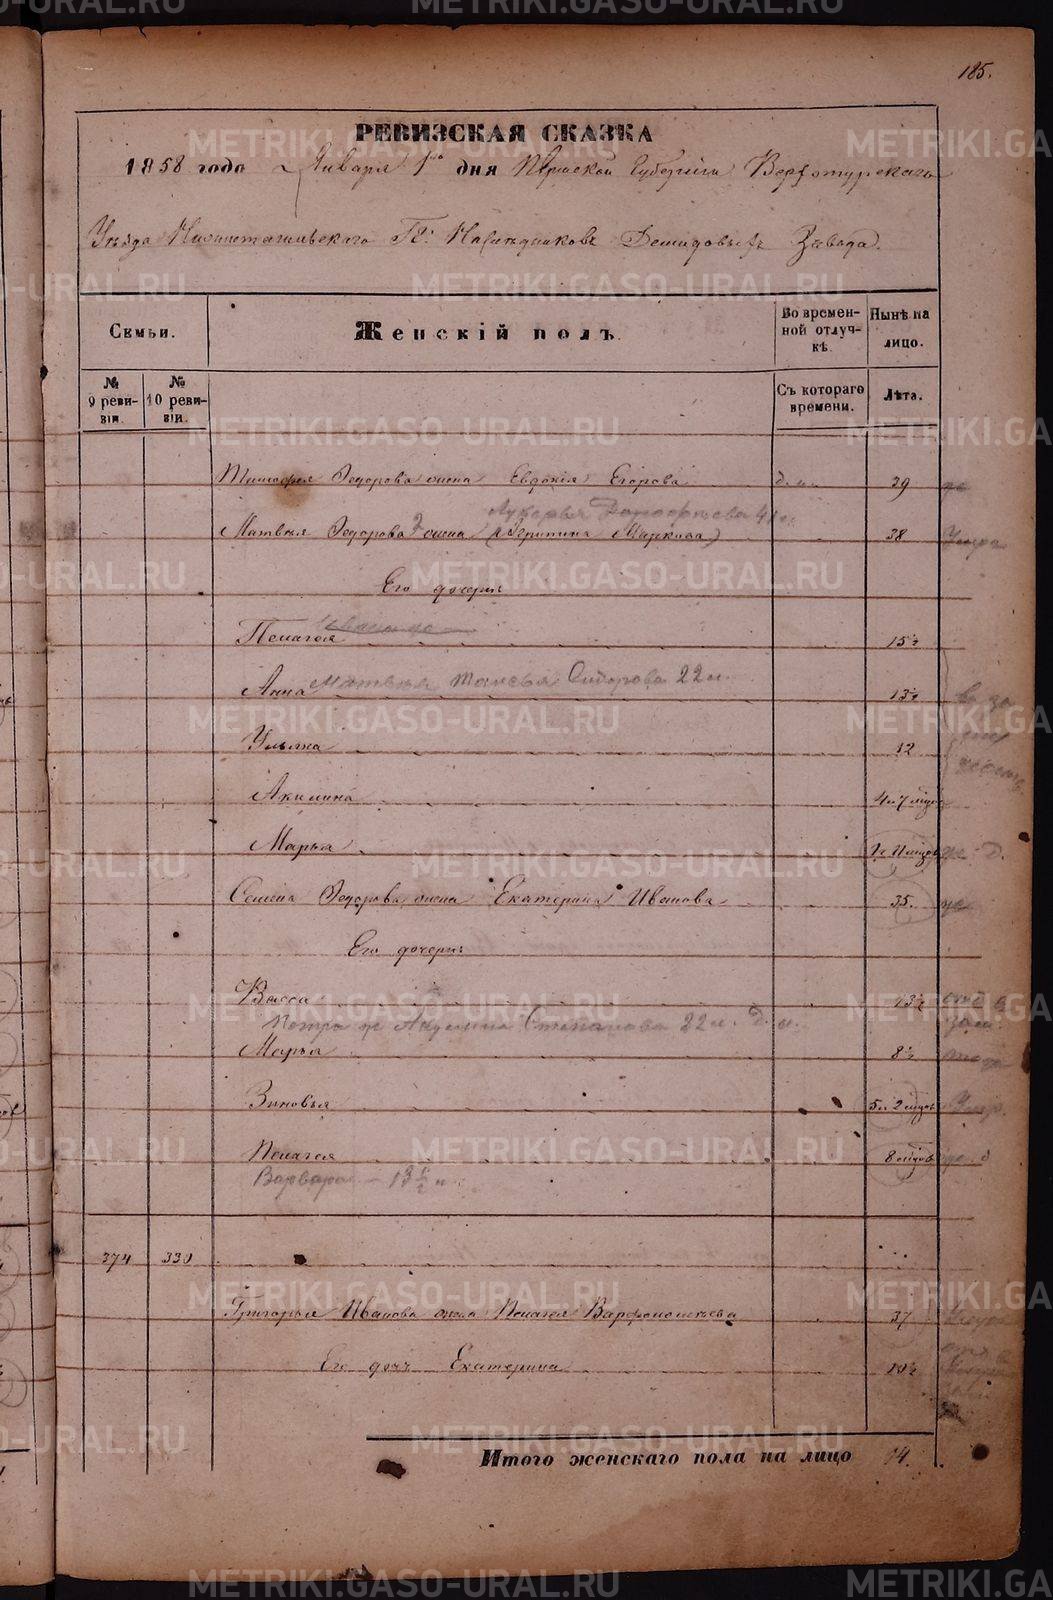 185.
РЕВИЗСКАЯ СКАЗКА
1858 года Января 1го дня Пермской Губернiи Верхотурскаго
Уѣзда Нижнетагильскаго Гг. Наслѣдниковъ Демидовыхъ Завода.
Семьи.
Женскiй полъ.
Во времен-
ной отлуч-
кѣ.
Нынѣ на
лицо.
№
9 реви-
зiи.
№
10 реви-
зiи.
Съ котораго
времени.
Лѣта.
Тимофея Федорова жена Евдокiя Егорова 39
Лукерья 41
Матвѣя Федорова 2 жена Маркова) 38 Умра
Его дочери
Пелагея 15½
Анна Матвѣя Таисья Сидорова 22 л. 13½
Ульяна 12
Акилина 4 и 7 мѣцов
Марья
Семена Федорова жена Екатерина Иванова 35.
Его дочери
Васса 13½
Петра ж Акулина Степанова 22 л.
Марья 8½
Зиновья 5 и 2 мѣцов Умр.
Пелагея 8 мѣцов
Варвара – 13½
374 330
Григорья Иванова жена Пелагея Варфоломѣева 37
Его дочь Екатерина 10½
Итого женскаго пола на лицо 14.
METRIKI.GASO-URAL.RU